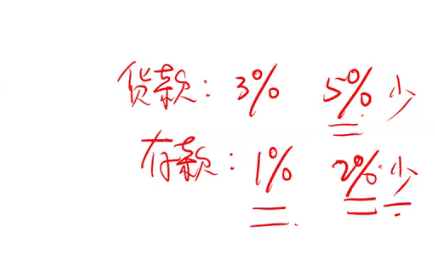 贷款：3% 5% 少
存款：1% 2% 少